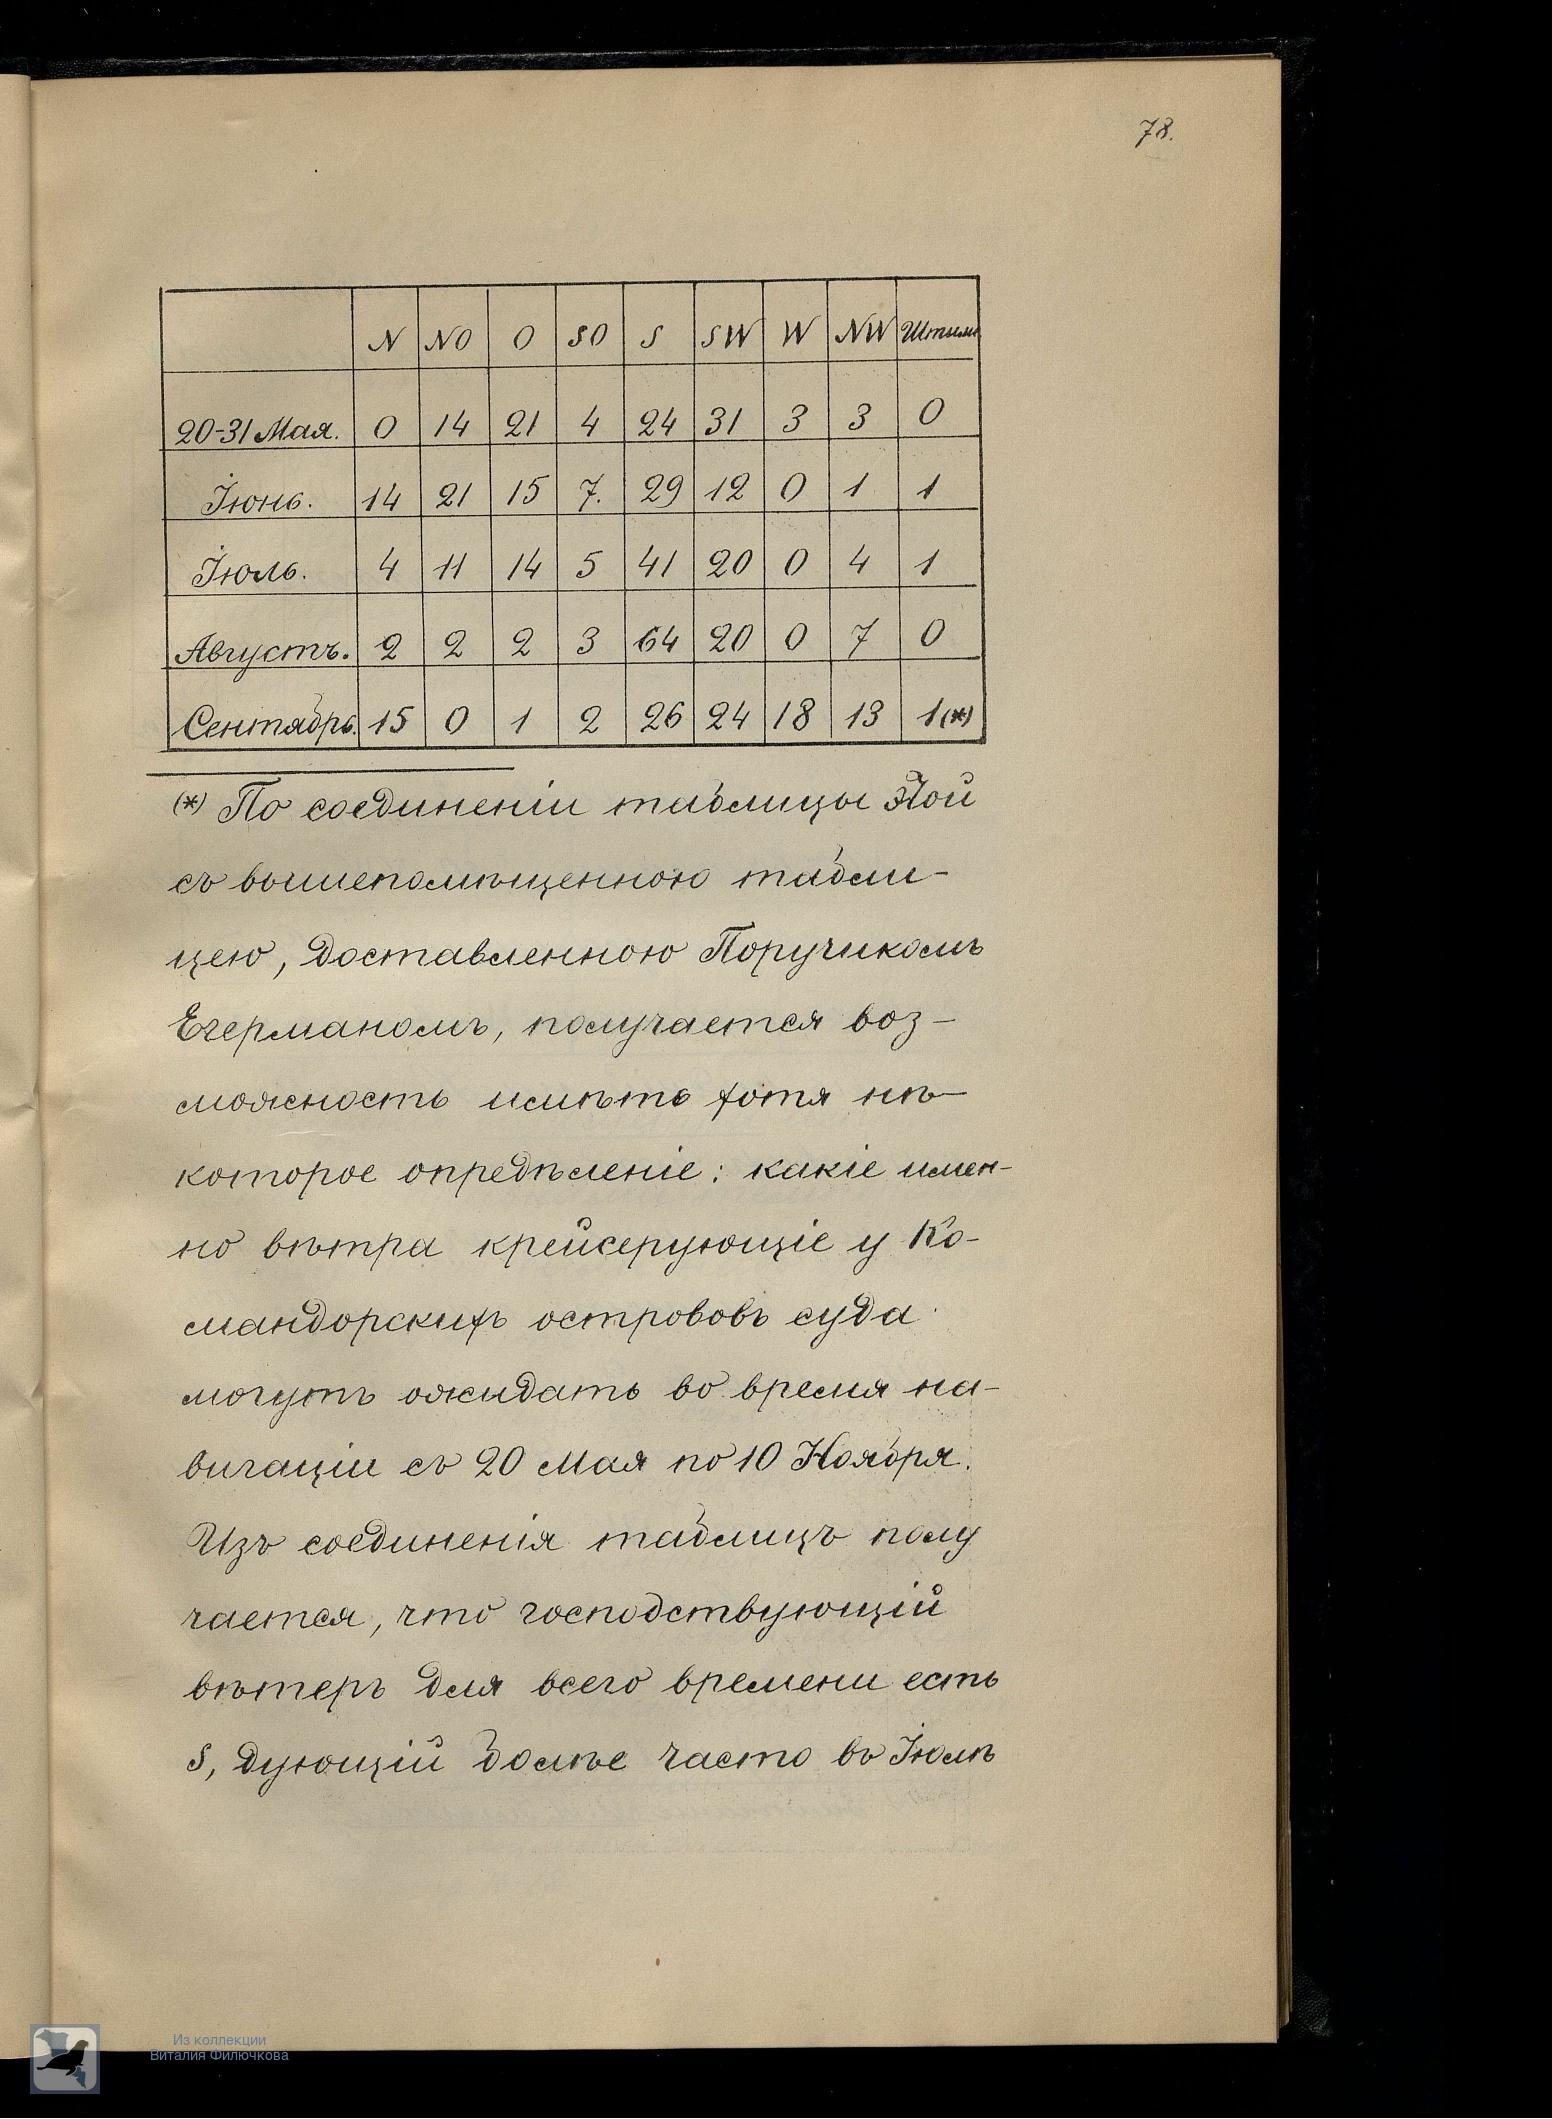 78.
N NO O SO S SW W NW Штиль
20-31 Мая. 0 14 21 4 24 31 3 3 0
Іюнь. 14 21 15 7. 29 12 0 1 1
Іюль. 4 11 14 5 41 20 0 4 1
Августъ. 2 2 2 3 64 20 0 7 0
Сентябрь. 15 0 1 2 26 24 18 13 1(*)
(*) По соединеніи таблицы этой
съ вышепомѣщенною табли-
цею, доставленною Поручикомъ
Егерманомъ, получается воз-
можность имѣть хотя нѣ-
которое опредѣленіе: какіе имен-
но вѣтра крейсерующіе у Ко-
мандорскихъ острововъ суда
могутъ ожидать во время на-
вигаціи съ 20 Мая по 10 Ноября.
Изъ соединенія таблицъ полу
чается, что господствующій
вѣтеръ для всего времени есть
S, дующій болѣе часто въ Іюлѣ
Из коллекции
Виталия Филючкова